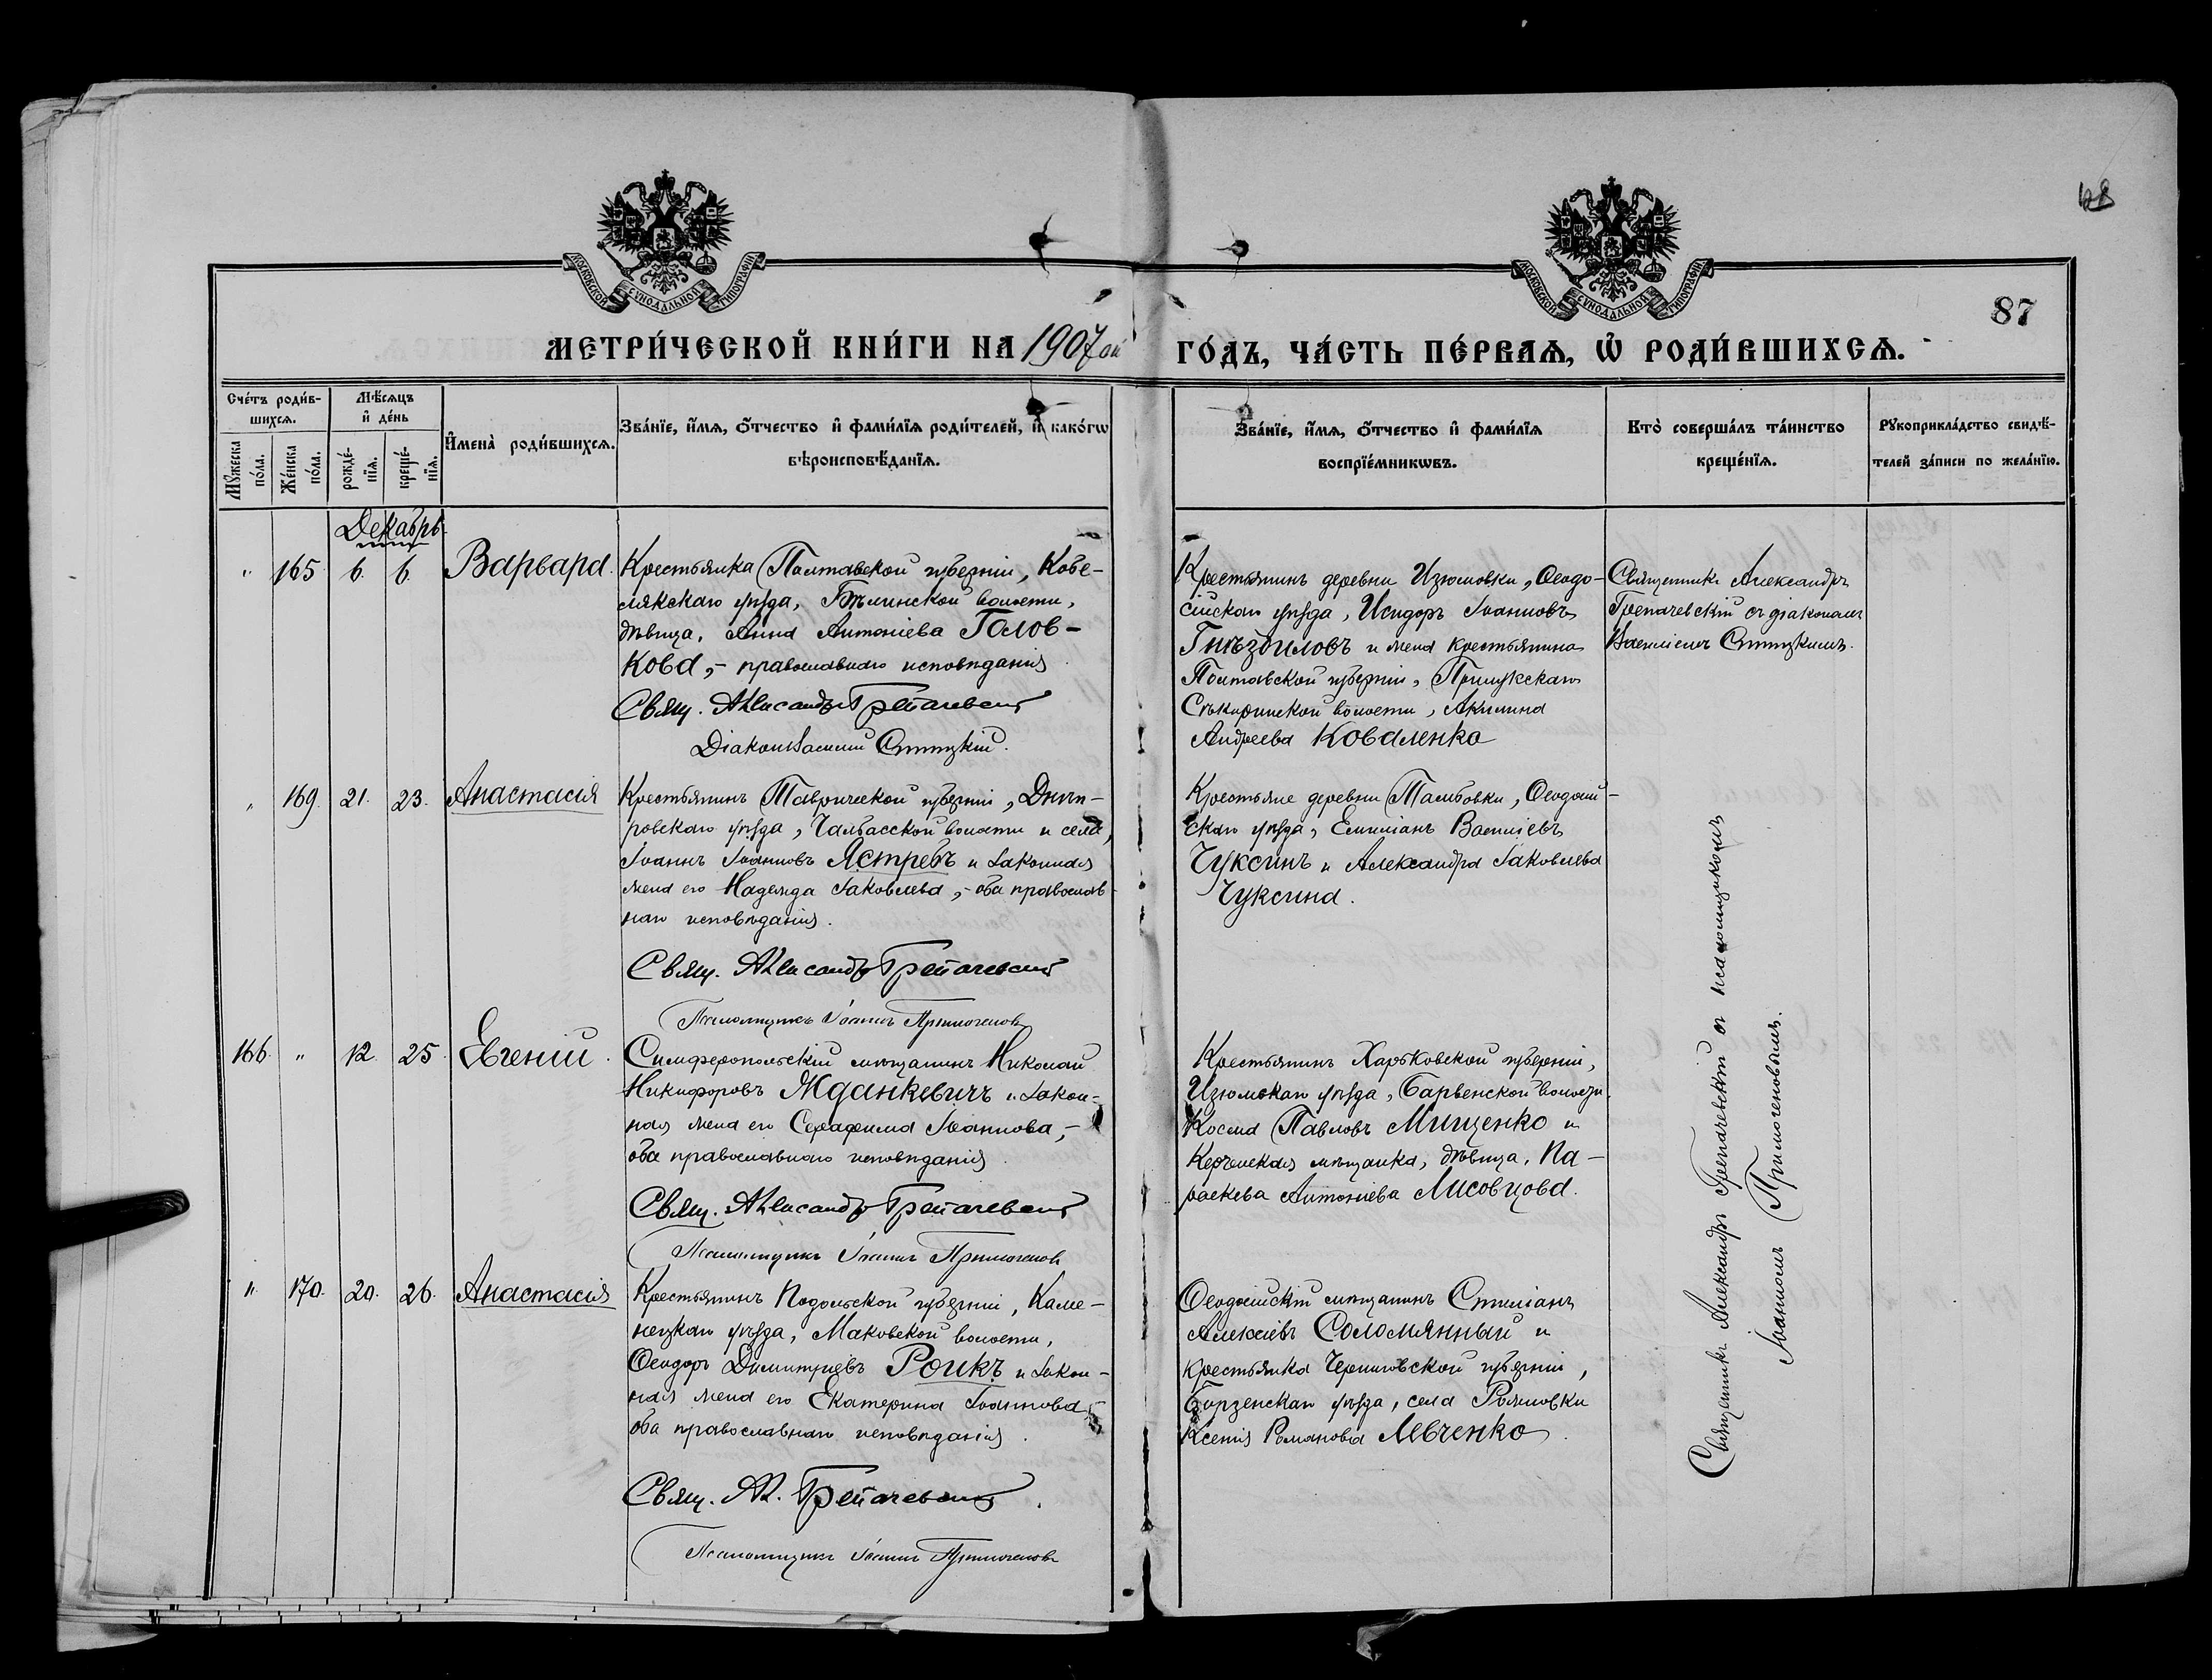 МОСКОВСКОЙ СѴНОДАЛЬНОЙ ТИПОГРАФІИ
МОСКОВСКОЙ СѴНОДАЛЬНОЙ ТИПОГРАФІИ
87
МЕТРИ́ЧЕСКОЙ КНИ́ГИ НА 1907ой ГО́ДЪ, ЧА́СТЬ ПЕ́РВАѦ, Ѡ҆ РОДИ́ВШИХСѦ.
Сче́тъ роди́в-
шихсѧ.
Мѹ́жеска по́ла.
Же́нска по́ла.
Мѣ́сѧцъ
и҆ де́нь
рожде́-
нїѧ.
креще́-
нїѧ.
И҆мена̀ роди́вшихсѧ.
Зва́нїе, и҆́мѧ, ѻ҆́тчество и҆ фами́лїѧ роди́телей, и҆ како́гѡ
вѣроисповѣ́данїѧ.
Зва́нїе, и҆́мѧ, ѻ҆́тчество и҆ фами́лїѧ
воспрїе́мникѡвъ.
Кто̀ соверша́лъ та́инство
креще́нїѧ.
Рꙋкоприкла́дство свидѣ́-
телей за́писи по жела́нїю.
Декабрь
" 165 6. 6. Варвара.
Крестьянка Полтавской губерніи, Кобе-
лякскаго уѣзда, Бѣликской волости,
дѣвица, Анна Антоніева Голов-
кова, - православнаго исповѣданія
Свящ. Александръ Трепачевскій
Діаконъ Василій Ступицкій.
Крестьянинъ деревни Изюмовки, Ѳеодо-
сійскаго уѣзда, Исидоръ Іоанновъ
Гнѣздиловъ и жена крестьянина
Полтавской губерніи, Прилукскаго
Сѣкиринской волости, Акилина
Андреева Коваленко
Священникъ Александръ
Трепачевскій съ діакономъ
Василіемъ
" 169. 21. 23. Анастасія
Крестьянинъ Таврической губерніи, Днѣп-
ровскаго уѣзда, Чалбасской волости и села,
Іоаннъ Іоанновъ Ястребъ и законная
жена его Надежда Іаковлева, - оба православ-
наго исповѣданія.
Свящ. Александръ Трепачевскій
Псаломщикъ Іоаннъ Примогеновъ
Крестьяне деревни Тамбовки, Ѳеодосій-
скаго уѣзда, Емиліанъ Василіевъ
Чуксинъ и Александра Іаковлева
Чуксина.
166. " 12. 25. Евгеній.
Симферопольскій мѣщанинъ Николай
Никифоровъ Жданкевичъ и закон-
ная жена его Серафима Іоаннова, -
оба православнаго исповѣданія.
Свящ. Александръ Трепачевскій
Псаломщикъ Іоаннъ Примогеновъ
Крестьянинъ Харьковской губерніи,
Изюмскаго уѣзда, Барвенской волости
Косма Павловъ Мищенко и
Керченская мѣщанка, дѣвица, Па-
раскева Антоніева Лисовцова.
" 170. 20. 26. Анастасія
Крестьянинъ Подольской губерніи, Каме-
нецкаго уѣзда, Маковской волости,
Ѳеодоръ Димитріевъ Роикъ и закон-
ная жена его Екатерина Іоаннова,
оба православнаго исповѣданія.
Свящ. Ал. Трепачевскій.
Псаломщикъ Іоаннъ Примогеновъ
Ѳеодосійскій мѣщанинъ Стиліанъ
Алексіевъ Соломянный и
крестьянка Черниговской губерніи,
Борзенскаго уѣзда, села
Ксенія Романова Левченко.
Священникъ Александръ Трепачевскій съ псаломщикомъ
Іоанномъ Примогеновымъ.